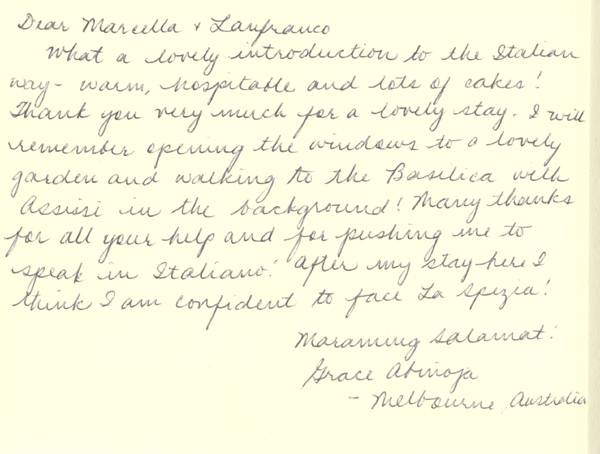 Dear Marcella + Lanfranco
What a lovely introduction to the Italian
way - warm, hospitable and lots of cakes!
Thank you very much for a lovely stay. I will
remember opening the windows to a lovely
garden and walking to the Basilica with
Assisi in the background! Many thanks
for all your help and for pushing me to
speak in Italiano! After my stay here I
think I am confident to face La Spezia!
Maraming Salamat!
Grace Abinoja
- Melbourne, Australia